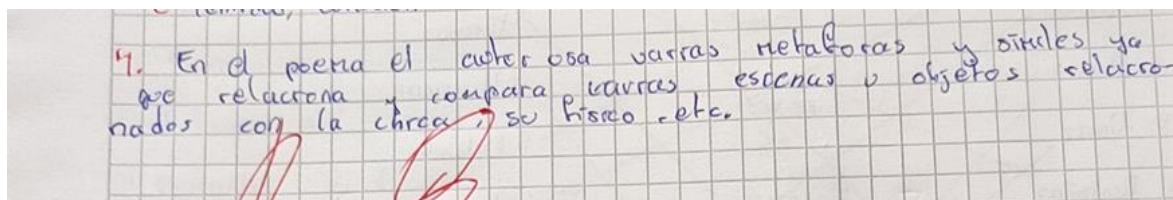 4. En el poema el autor usa varias metaforas y simeles ya
que relaciona y compara varias escenas u objetos relacio-
nados con la chica, su fisico. etc.